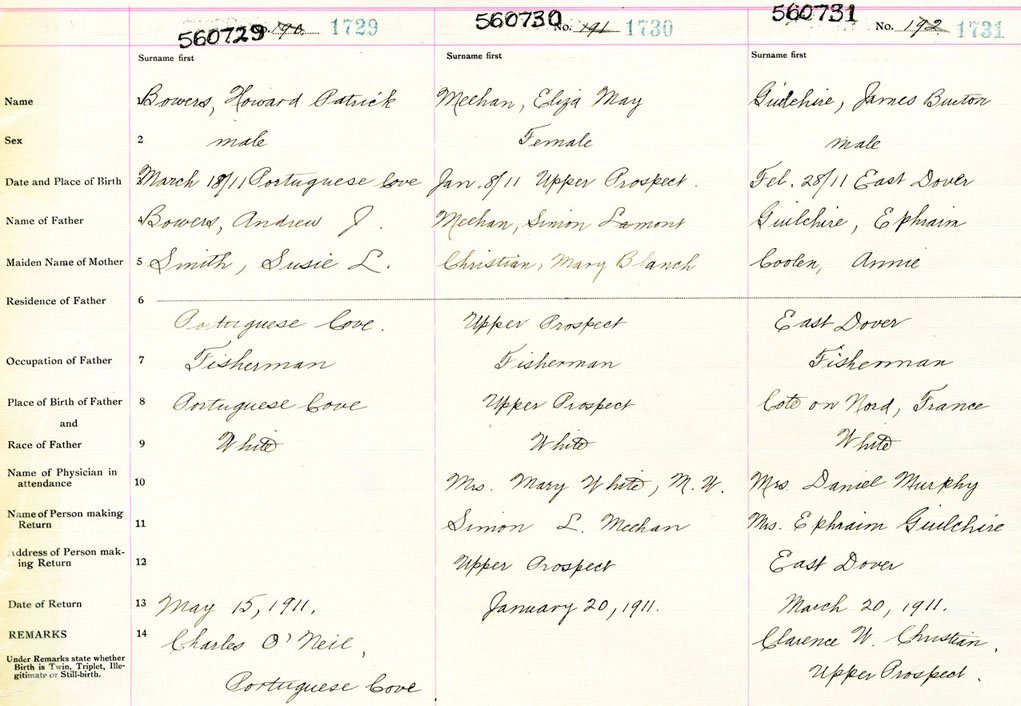 560729 No. 190 1729 560730 No. 191 1730 560731 No. 192 1731
Surname first Surname first Surname first
Name 1 Bowers, Howard Patrick Meehan, Eliza May Guilchire, James Burton
Sex 2 male Female male
Date and Place of Birth 3 March 18/11 Portuguese Cove Jan. 8/11 Upper Prospect. Feb. 28/11 East Dover
Name of Father 4 Bowers, Andrew J. Meehan, Simon Lamont Guilchire, Ephraim
Maiden Name of Mother 5 Smith, Susie L. Christian, Mary Blanch Coolen, Annie
Residence of Father 6
Portuguese Cove. Upper Prospect East Dover
Occupation of Father 7 Fisherman Fisherman Fisherman
Place of Birth of Father 8 Portuguese Cove Upper Prospect Cote on Nord, France
and
Race of Father 9 White White White
Name of Physician in
attendance 10 Mrs. Mary White, M.W. Mrs. Daniel Murphy
Name of Person making
Return 11 Simon L. Meehan Mrs. Ephraim Guilchire
Address of Person mak-
ing Return 12 Upper Prospect East Dover
Date of Return 13 May 15, 1911. January 20, 1911. March 20, 1911.
REMARKS 14 Charles O'Neil, Clarence W. Christian,
Under Remarks state whether
Birth is Twin, Triplet, Ille-
gitimate or Still-birth.
Portuguese Cove Upper Prospect.